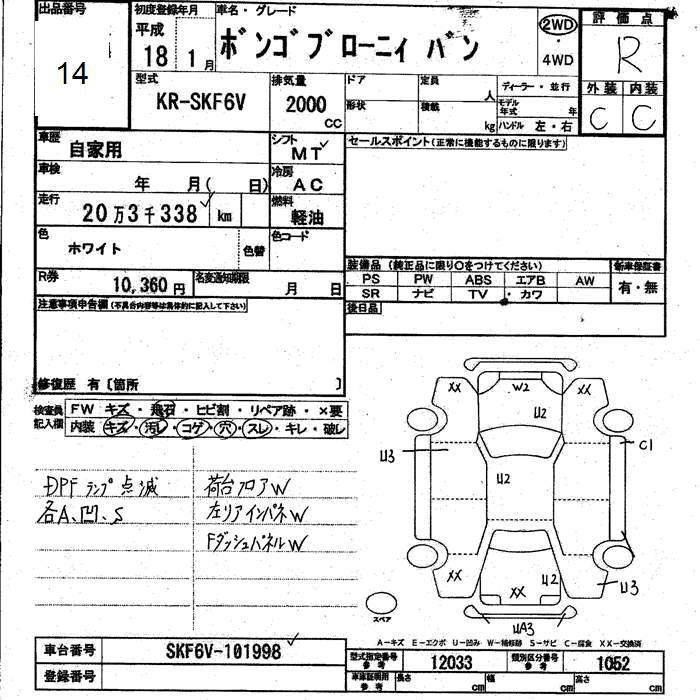 出品番号 初度登録年月 車名・グレード 評価点
14 平成 18 1月 ボンゴブローニィ バン 2WD ・ 4WD R
型式 排気量 ドア 定員 人 ディーラー・並行 外装 内装
KR-SKF6V 2000 CC 形状 積載 kg モデル年式 年 ハンドル 左・右 C C
車歴 自家用 シフト MT セールスポイント(正常に機能するものに限ります)
車検 年 月( 日) 冷房 AC
走行 20万3千338 km 燃料 軽油
色 ホワイト 色替 色コード
装備品 (純正品に限り○をつけてください) 新車保証書
R券 10,360円 名変通知期限 月 日 PS PW ABS エアB AW 有・無
SR ナビ TV ・カワ
注意事項申告欄(不具合内容等は具体的に記入して下さい) 後日品
修復歴 有〔箇所 〕
検査員記入欄 FW キズ・飛石・ヒビ割・リペア跡・×要
内装 キズ・汚レ・コゲ・穴・スレ・キレ・破レ
DPFランプ点滅 荷台フロアW
各A、凹、S 左リアインパネW
FダッシュパネルW
XX W2 XX
U2
U3 U2 C1
XX XX U2 U3
スペア UA3
A-キズ E-エクボ U-凹み W-補修跡 S-サビ C-腐食 XX-交換済
車台番号 SKF6V-101998 型式指定番号 参考 12033 類別区分番号 参考 1052
登録番号 車庫証明用 参考 長さ cm 幅 cm 高さ cm